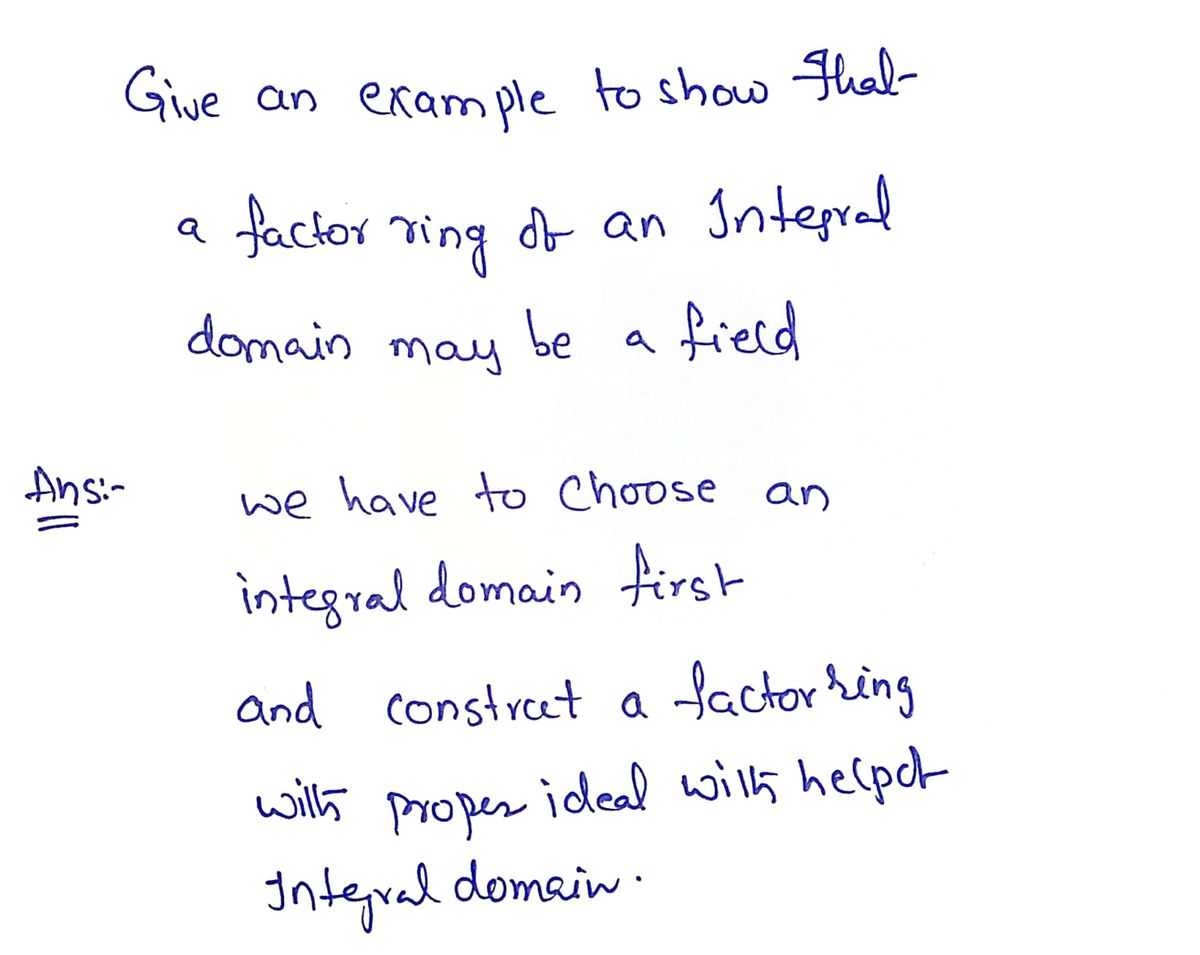 Give an example to show that
a factor ring of an Integral
domain may be a field
Ans:-
we have to choose an
integral domain first
and construct a factor ring
with proper ideal with help of
Integral domain.